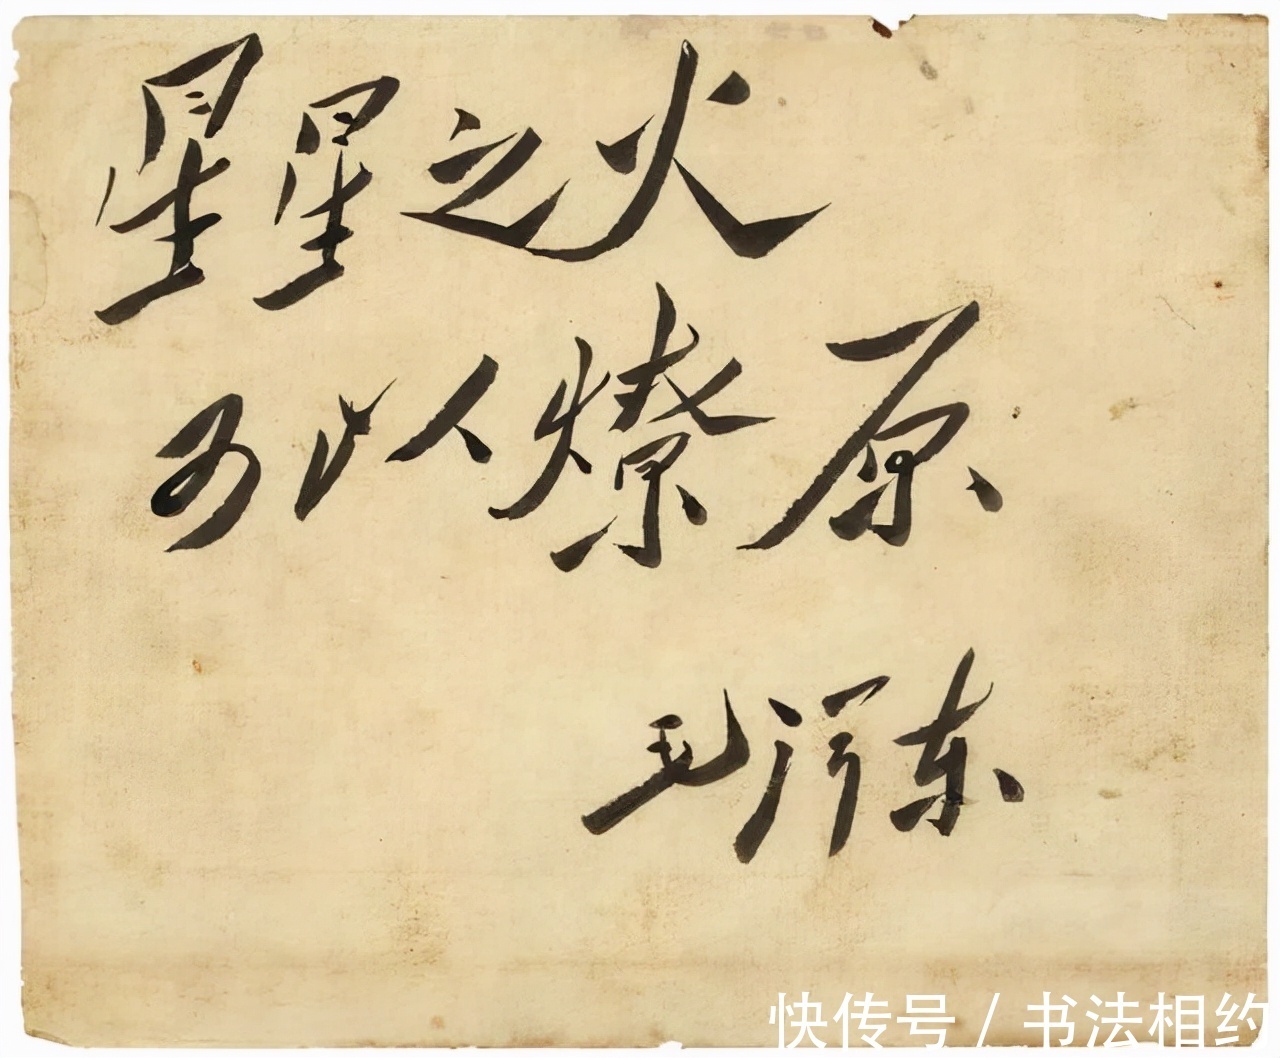 星星之火
可以燎原
毛泽东
快传号 / 书法相约